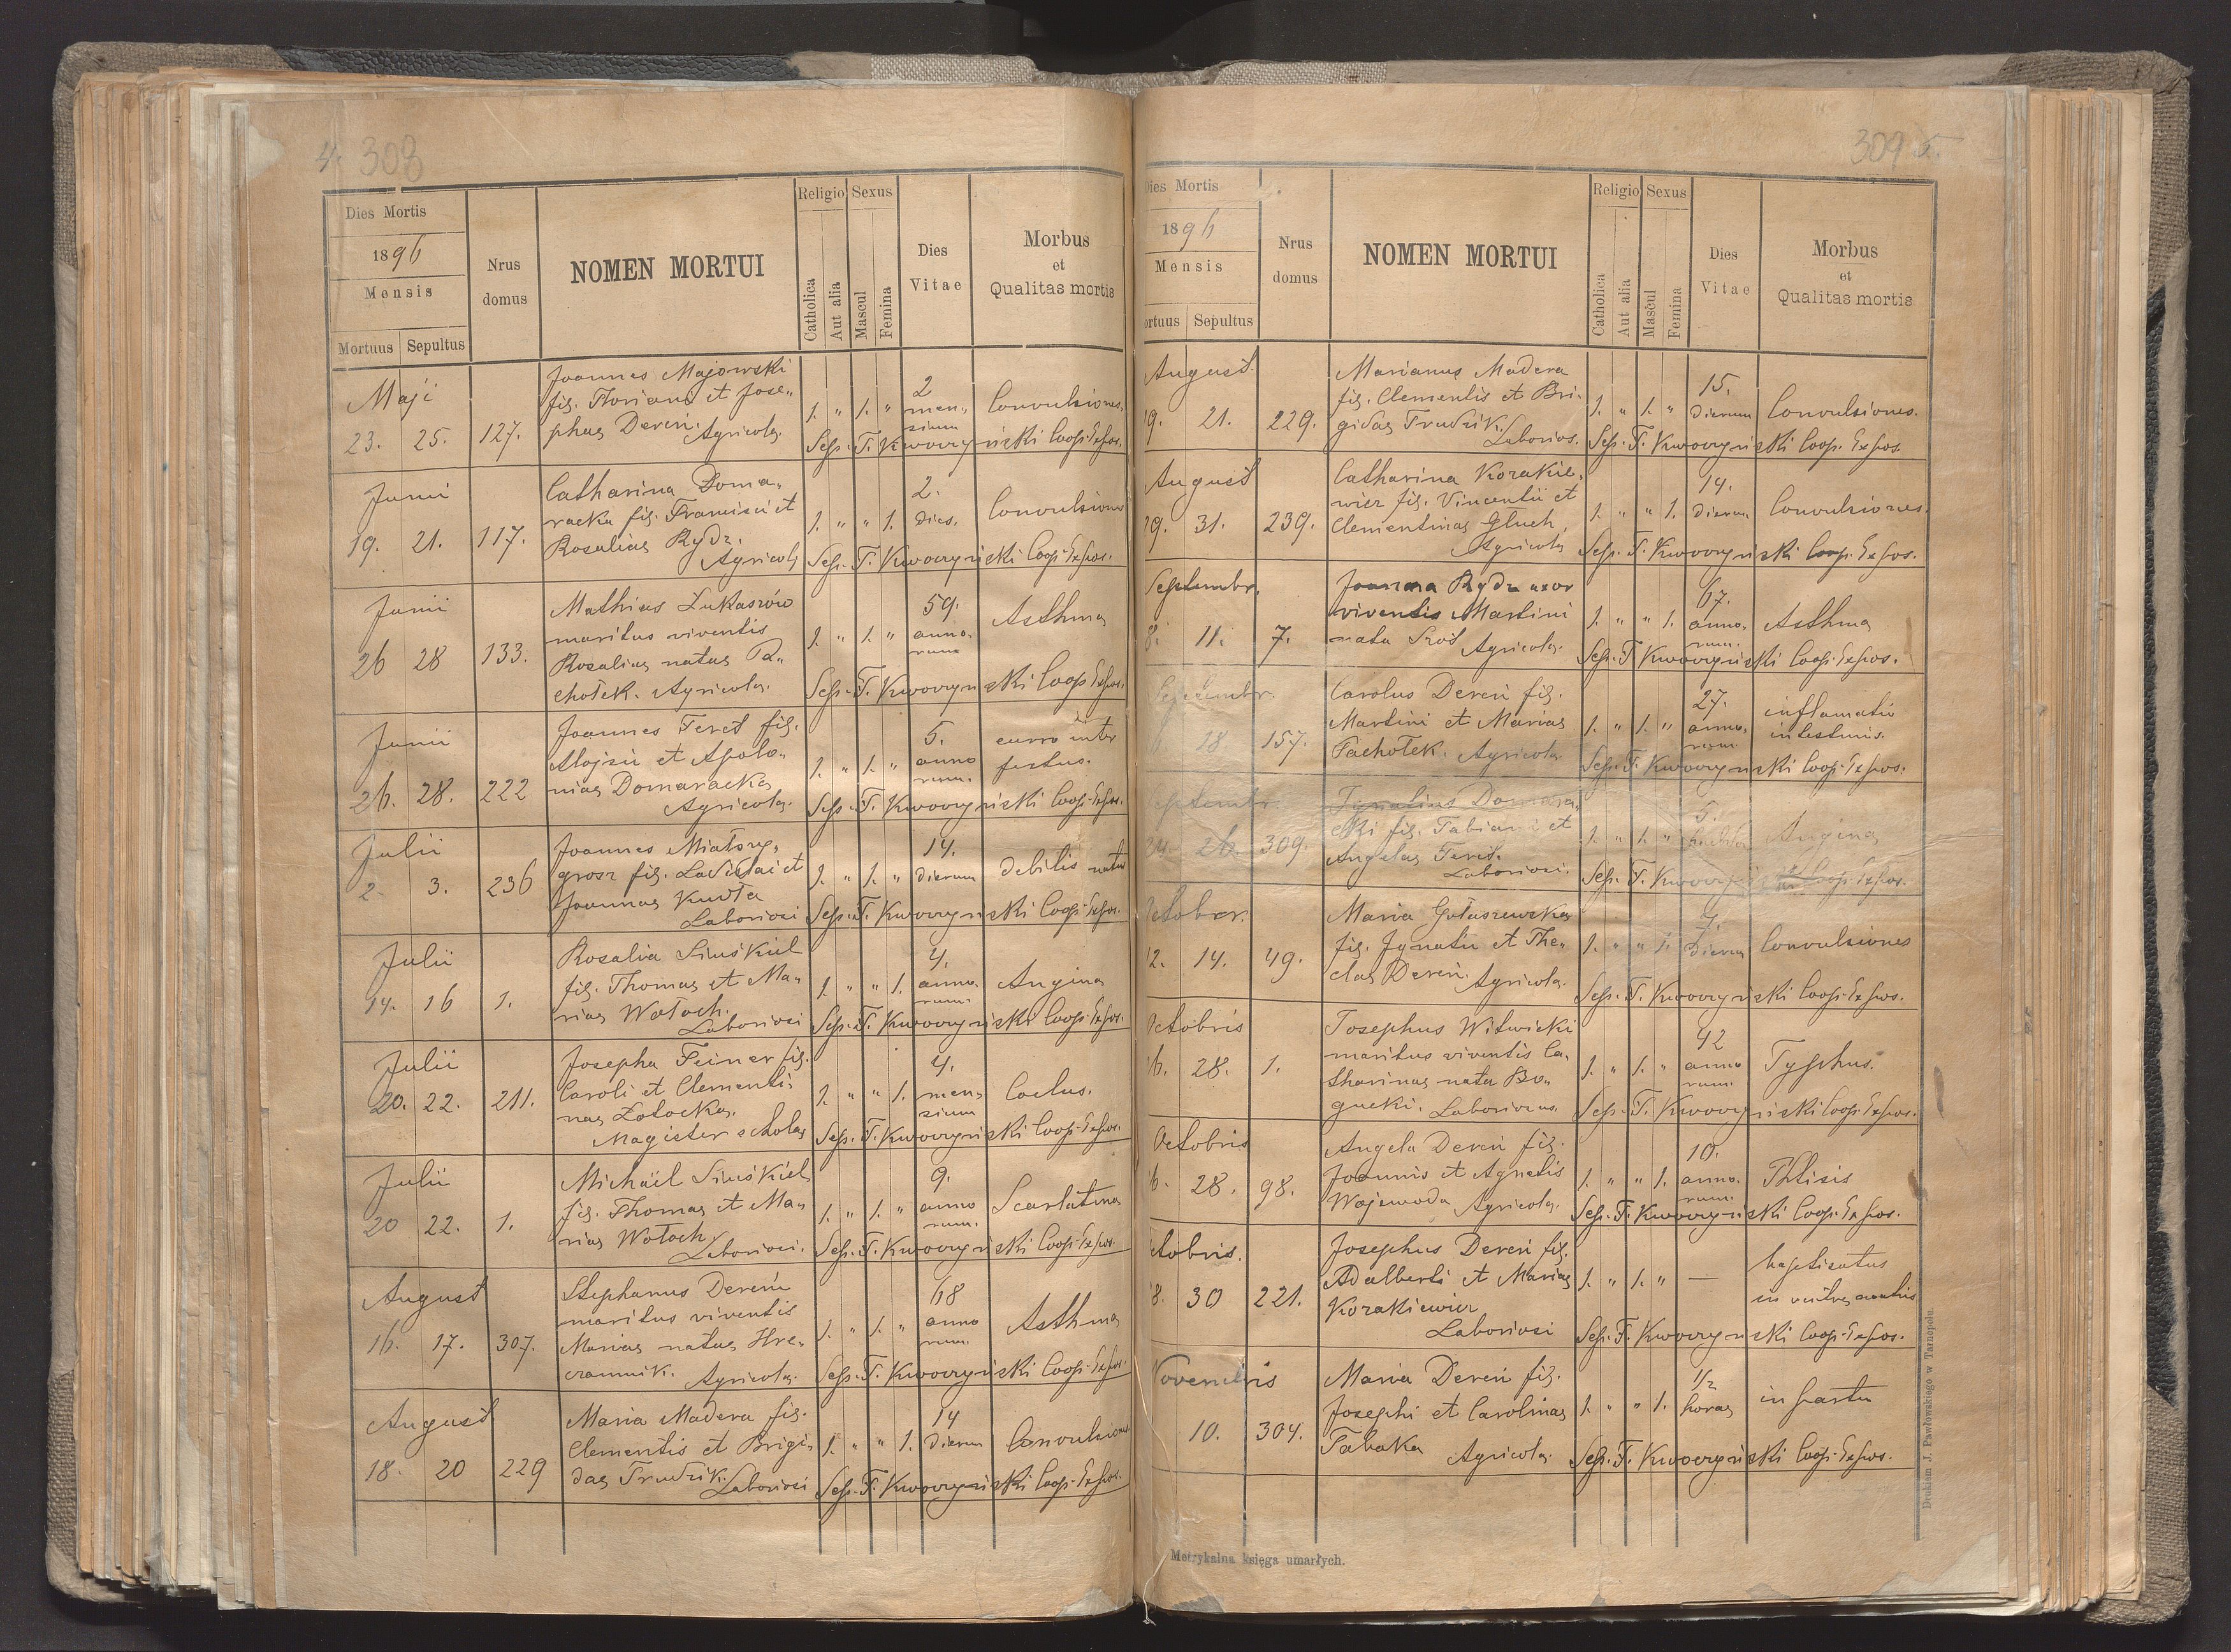 4. 308
Dies Mortis
1896
Mensis
Mortuus Sepultus
Nrus domus
NOMEN MORTUI
Religio Sexus
Catholica Aut alia Mascul Femina
Dies Vitae
Morbus
et
Qualitas mortis
Maji
23. 25. 127.
Joannes Majowski
fil. Floriani et Jose„
phae Dereń. Agricolae
1. „ 1. „
2
men„
sium
Convulsiones.
Sep. F. Kwoczyński Coop. Expos.
Junii
19. 21. 117.
Catharina Doma„
racka fil. Francisci et
Rosaliae Rydz.
Agricolae
1. „ „ 1.
2.
dies.
Convulsiones
Sep. F. Kwoczyński Coop. Expos.
Junii
26 28 133.
Mathias Łukaszów
maritus viventis
Rosaliae natae Pa„
chołek. Agricolae.
1. „ 1. „
59.
anno„
rum
Asthma
Sep. F. Kwoczyński Coop. Expos.
Junii
26. 28. 222
Joannes Feret fil.
Alojsii et Apolo„
niae Domaracka
Agricolae.
1. „ 1. „
5.
anno
rum.
curro inter
fectus.
Sep. F. Kwoczyński Coop. Expos.
Julii
2. 3. 236
Joannes Miałsry„
grosz fil. Ladislai et
Joannae Kudła
Laboriosi
1. „ 1. „
14.
dierum
debilis natus
Sep. F. Kwoczyński Coop. Expos.
Julii
14. 16 1.
Rosalia Siuśkiel
fil. Thomae et Ma„
riae Wołoch.
Laboriosi
1. „ „ 1.
4.
anno„
rum.
Angina
Sep. F. Kwoczyński Coop. Expos.
Julii
20. 22. 211.
Josepha Feiner fil.
Caroli et Clementi„
nae Załocka.
Magister scholae
1. „ „ 1.
4.
men„
sium
Coelus.
Sep. F. Kwoczyński Coop. Expos.
Julii
20 22. 1.
Michäel Siuśkiel
fil. Thomae et Ma„
riae Wołoch.
Laboriosi.
1. „ 1. „
9.
anno
rum.
Scarlatina
Sep. F. Kwoczyński Coop. Expos.
August
16. 17. 307.
Stephanus Dereń
maritus viventis
Mariae natae Hre„
czannik. Agricolae.
1. „ 1. „
68
anno
rum.
Asthma
Sep. F. Kwoczyński Coop. Expos.
August
18. 20 229
Maria Madera fil.
Clementis et Brigi„
dae Trudzik. Laboriosi
1. „ „ 1.
14
dierum
Convulsiones
Sep. F. Kwoczyński Coop. Expos.
309 5.
Dies Mortis
1896
Mensis
ortuus Sepultus
Nrus domus
NOMEN MORTUI
Religio Sexus
Catholica Aut alia Mascul Femina
Dies Vitae
Morbus
et
Qualitas mortis
August.
19. 21. 229.
Marianus Madera
fil. Clementis et Bri„
gidae Trudzik.
Laborios.
1. „ 1. „
15.
dierum
Convulsiones.
Sep. F. Kwoczyński Coop. Expos.
August
29. 31. 239.
Catharina Kozakie„
wicz fil. Vincentii et
Clementinae Głuch,
Agricolae
1. „ „ 1.
14.
dierum
Convulsiones.
Sep. F. Kwoczyński Coop. Expos.
Septembr.
8. 11. 7.
Joanna Rydz uxor
viventis Martini
nata Koś Agricolae.
1. „ „ 1.
67.
anno„
rum.
Asthma
Sep. F. Kwoczyński Coop. Expos.
Septembr.
28. 157.
Carolus Dereń fil.
Martini et Mariae
Pachołek. Agricolae
1. „ 1. „
27.
anno„
rum.
inflamatio
intestinis.
Sep. F. Kwoczyński Coop. Expos.
Septembr.
24. 26. 309.
Ignatius Domara„
cki fil. Fabiani et
Angelae Feret.
Laboriosi.
1. „ 1. „
5.
Angina
Sep. F. Kwoczyński Coop. Expos.
October.
12. 14. 49.
Maria Gołaszewska
fil. Ignatii et The„
clae Dereń. Agricolae.
1. „ „ 1.
7.
dierum
Convulsiones
Sep. F. Kwoczyński Coop. Expos.
Octobris
26. 28. 1.
Josephus Witwicki
maritus viventis Ca„
tharinae nata Bo„
gucki. Laboriosus.
1. „ 1. „
42
anno
rum.
Typhus.
Sep. F. Kwoczyński Coop. Expos.
Octobris
6. 28. 98.
Angela Dereń fil.
Joannis et Agnetis
Wojewoda Agricolae.
1. „ „ 1.
10.
anno„
rum.
Phtisis
Sep. F. Kwoczyński Coop. Expos.
Octobris.
8. 30 221.
Josephus Dereń fil.
Adalberti et Mariae
Kozakiewicz
Laboriosi
1. „ 1. „
—
baptisatus
in ventre matris
Sep. F. Kwoczyński Coop. Expos.
Novembris
10. 304.
Maria Dereń fil.
Josephi et Carolinae
Tabaka Agricolae.
1. „ „ 1.
1/2
horae
in partu
Sep. F. Kwoczyński Coop. Expos.
Metrykalna księga umarłych.
Drukiem J. Pawłowskiego w Tarnopolu.